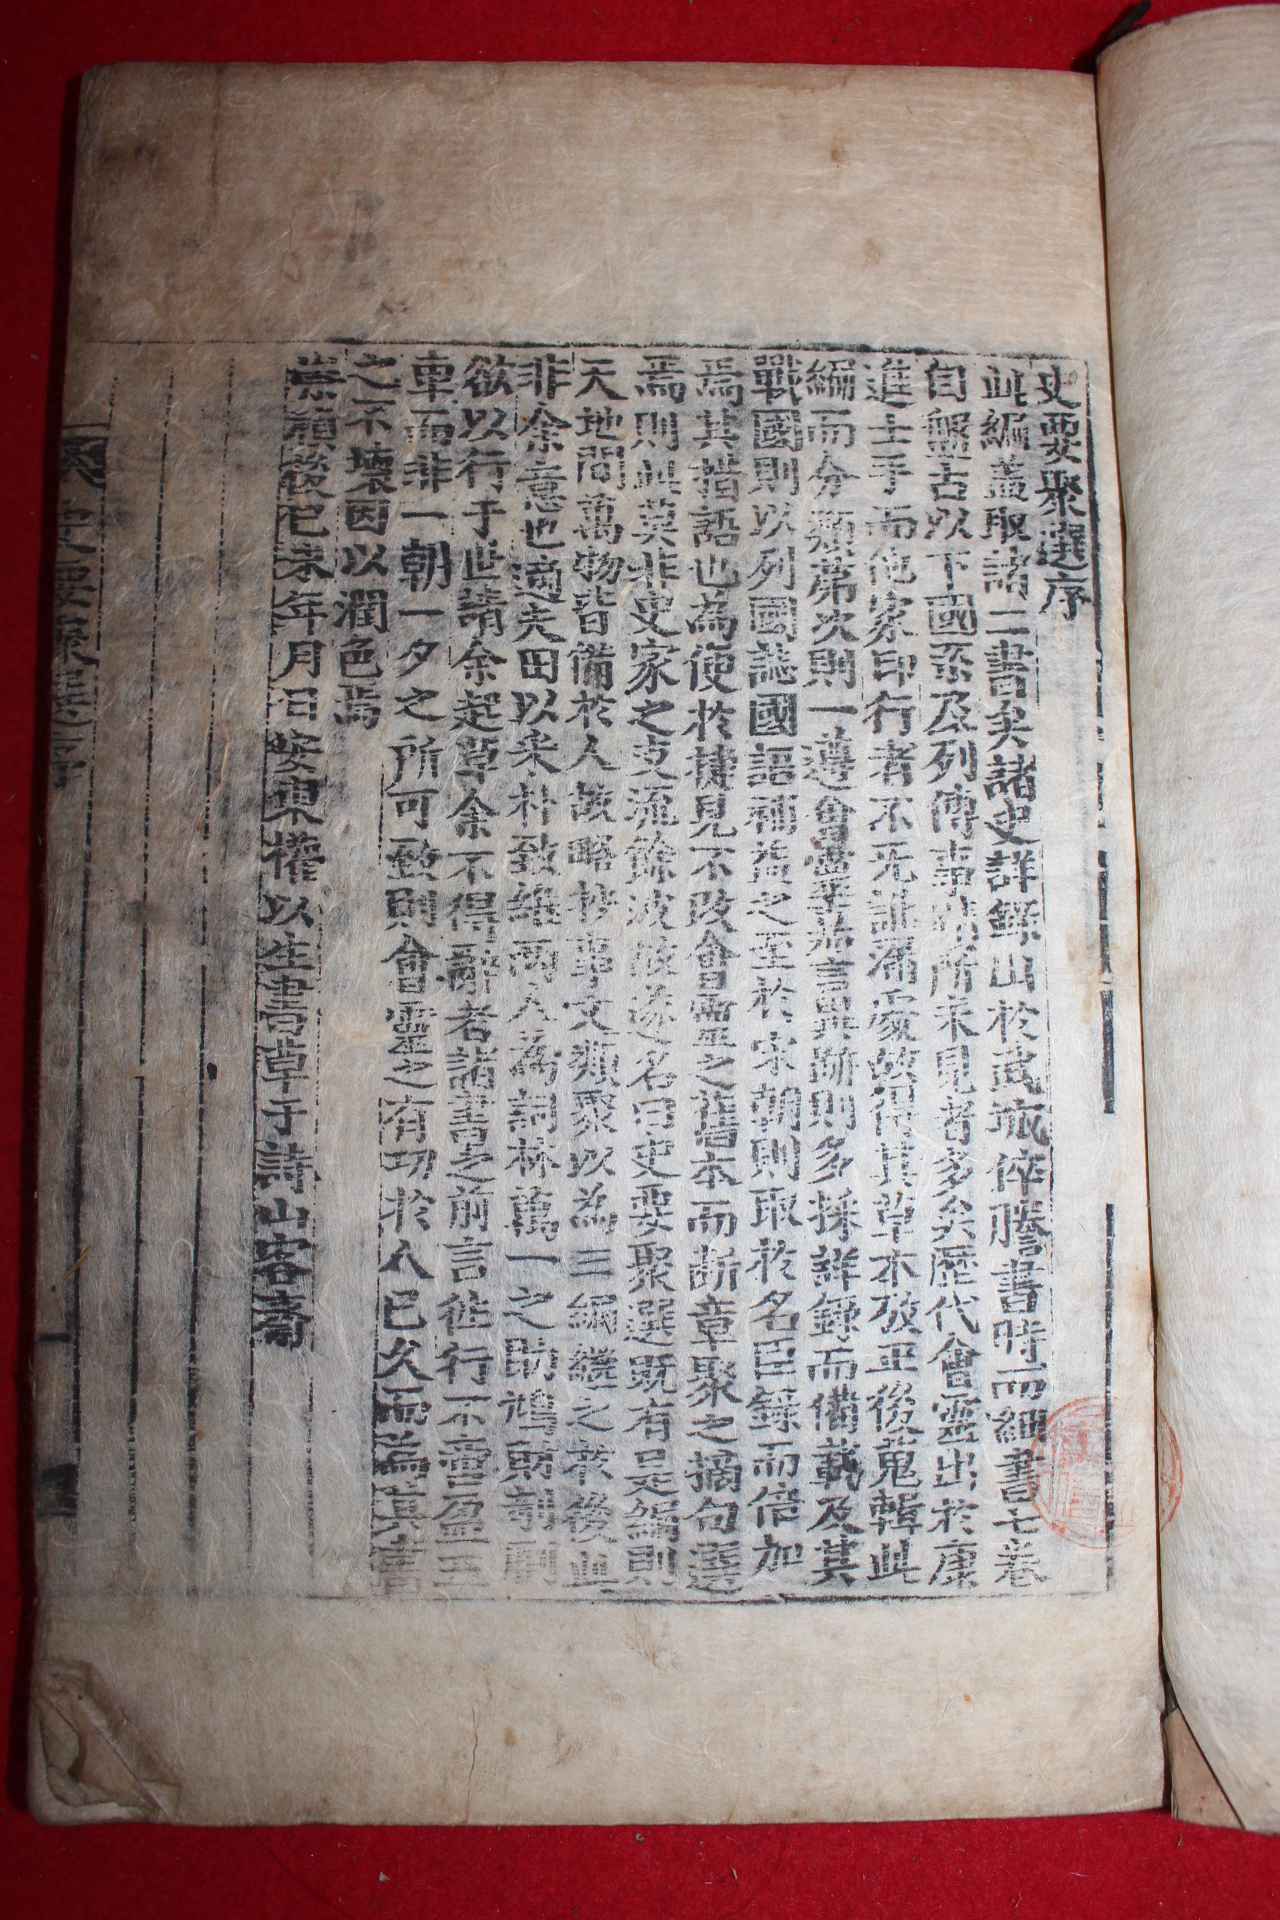 史要聚選序
此編蓋取諸二書矣諸史詳錄出於武城倅謄書時而細書七卷
自盤古以下國系及列傳事跡所未見者多矣歷代會靈出於康
進士手而他家印行者不无訛漏處故得其草本攷正後蒐輯此
編而分類第次則一遵會靈嘉言異跡則多採詳錄而備載及其
戰國則以列國誌國語補益之至於宋朝則取於名臣錄而倍加
焉其措語也為便於據見不改會靈之舊本而斷章聚之摘句選
焉則此莫非史家之支流餘波故遂名曰史要聚選既有是編則
天地間萬物皆備於人故略抄事文類聚以為三綱繼之於後此
非余意也適夫田以采朴致維兩人為詞林萬一之助鳩財剞劂
欲以行于世請余起草余不得辭者諸書之前言往行不啻盈五
車而非一朝一夕之所可致則會靈之有功於人已久而益眞書
之不壞因以潤色焉
崇禎後己未年月日安東權以生書草于詩山客齋
史要聚選序